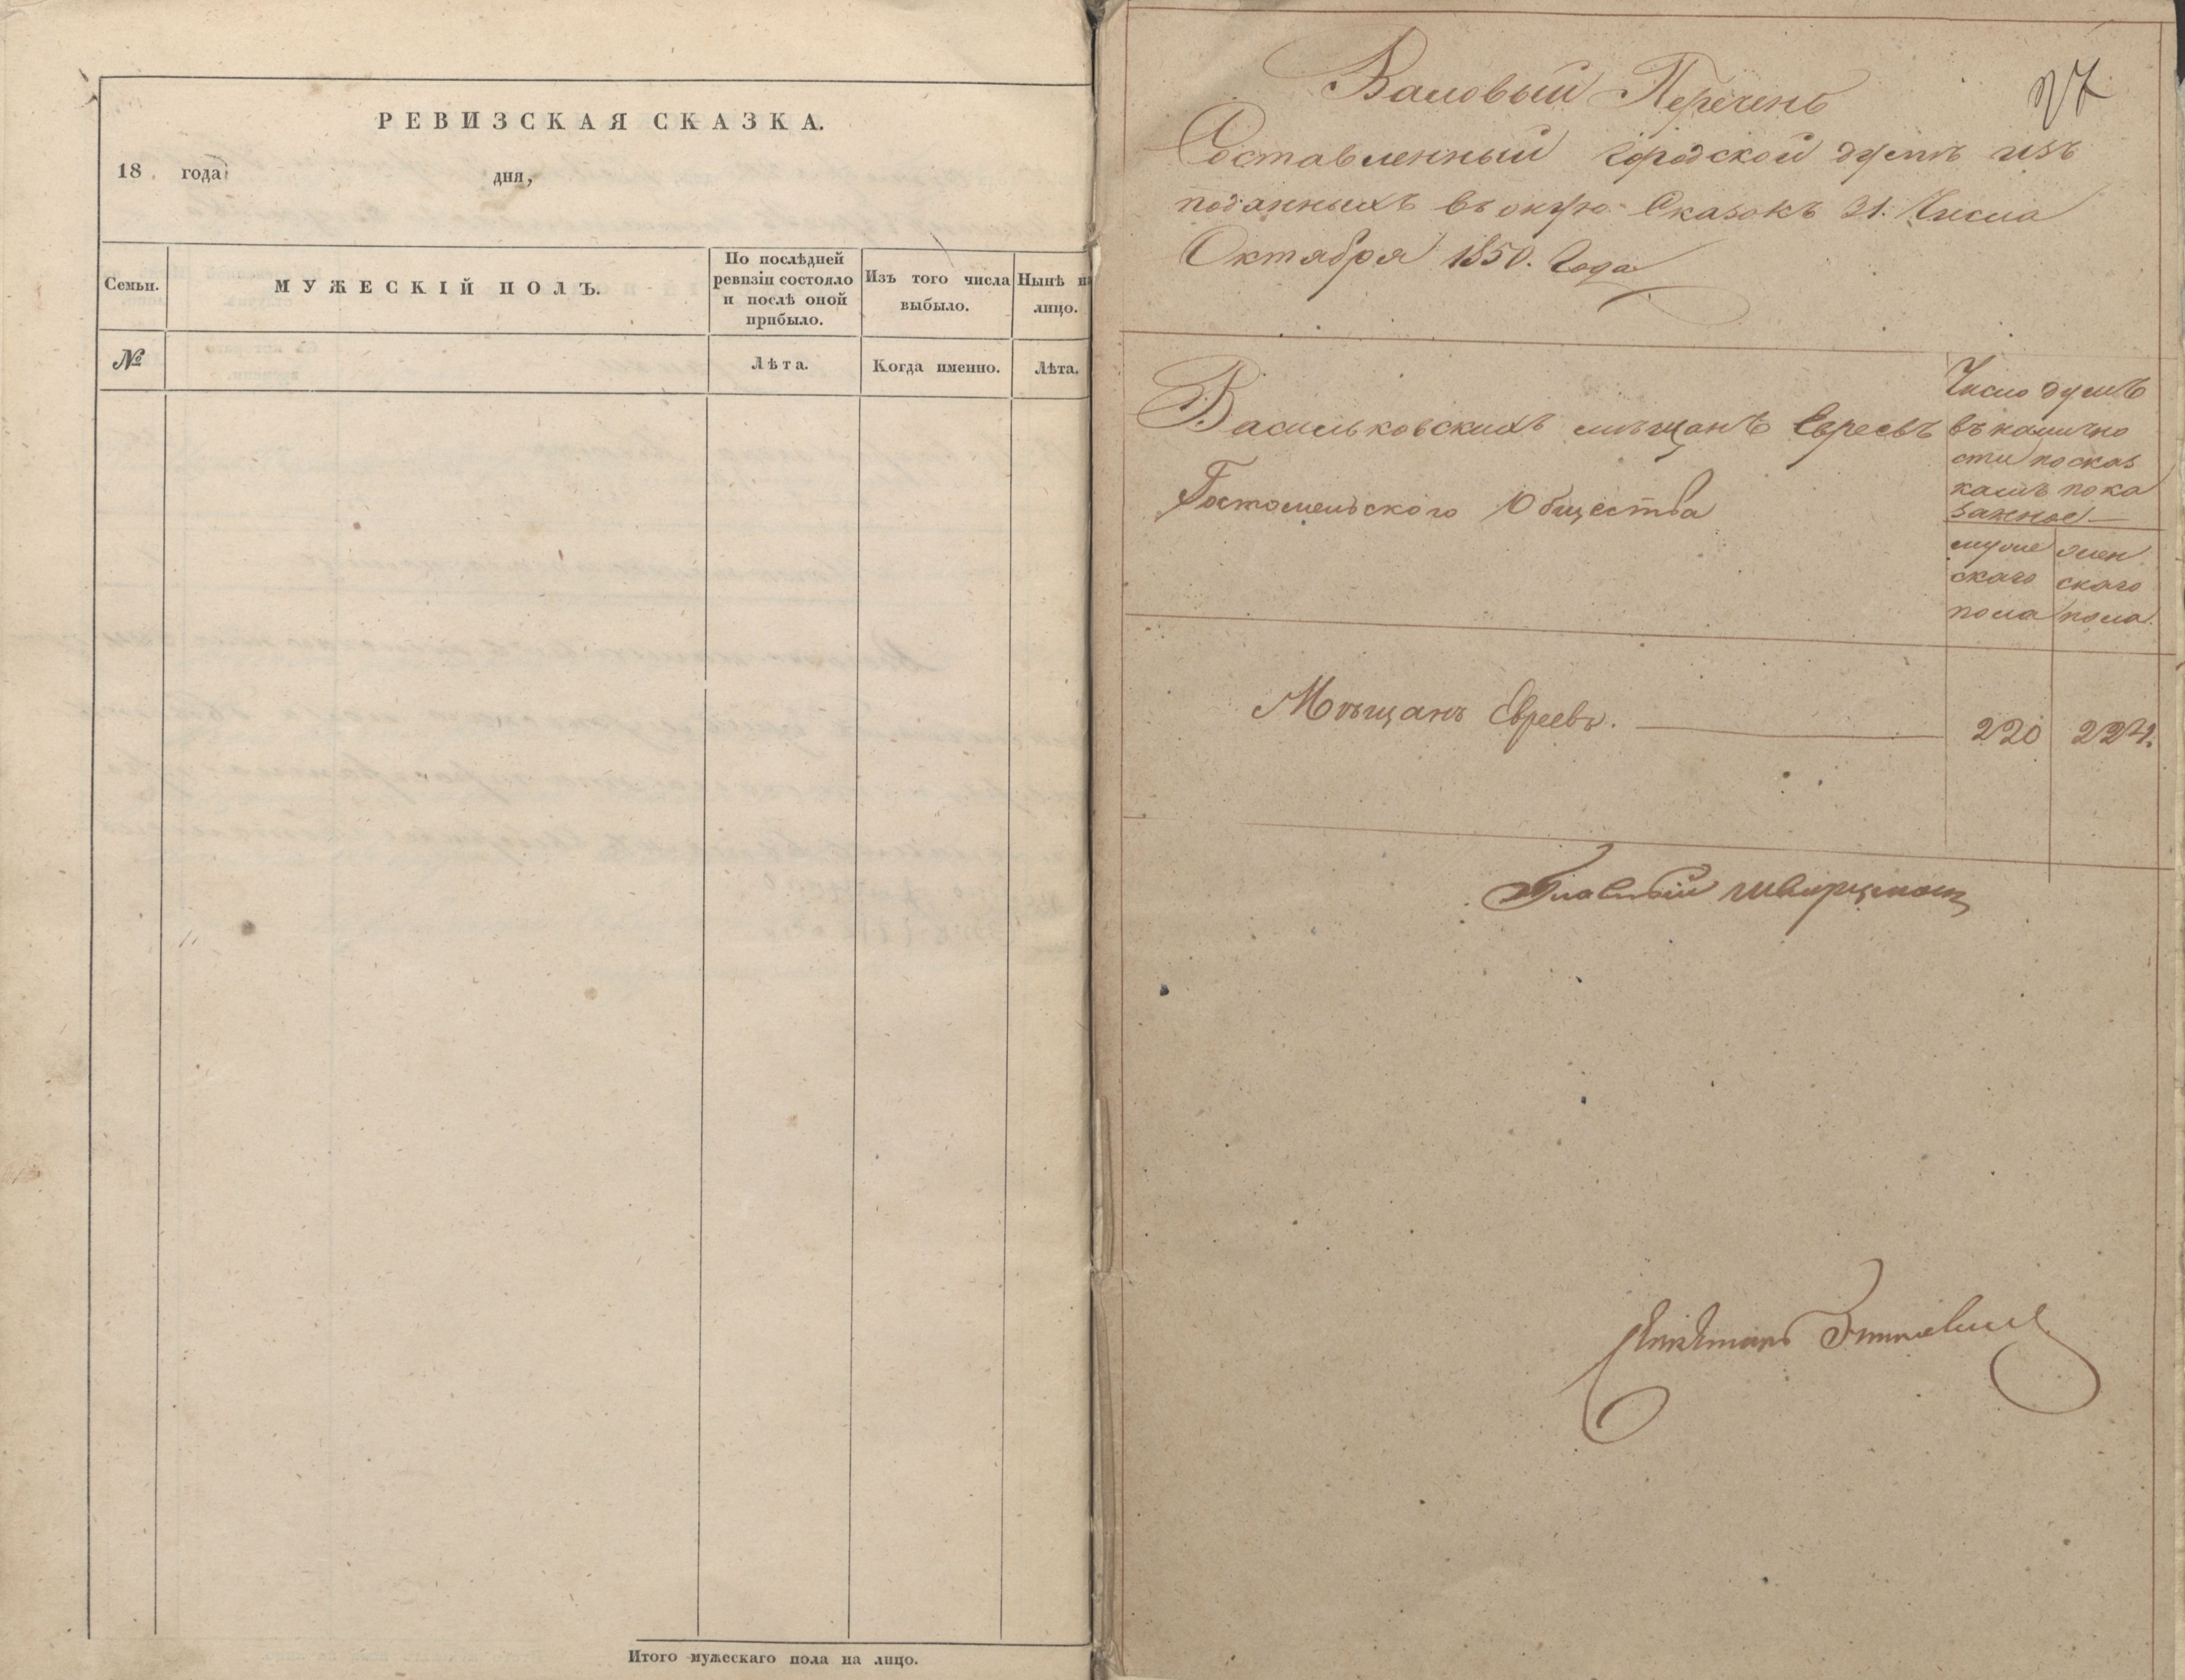 РЕВИЗСКАЯ СКАЗКА.
18 года дня,
Семьи.
МУЖЕСКІЙ ПОЛЪ.
По послѣдней
ревизіи состояло
и послѣ оной
прибыло.
Изъ того числа
выбыло.
Нынѣ на
лицо.
№
Лѣта.
Когда именно.
Лѣта.
Итого мужескаго пола на лицо.
27
Валовый Перечень
Составленный Городской думѣ изъ
поданныхъ въ оную Сказокъ 31. Числа
Октября 1850. Года
Васильковскихъ мѣщанъ Евреевъ
Гостомельского Общества
Число душъ
въ налично
сти по сказ
камъ пока
занное
муже
скаго
пола
жен
скаго
пола.
Мѣщанъ Евреевъ. 220 224.
Главный